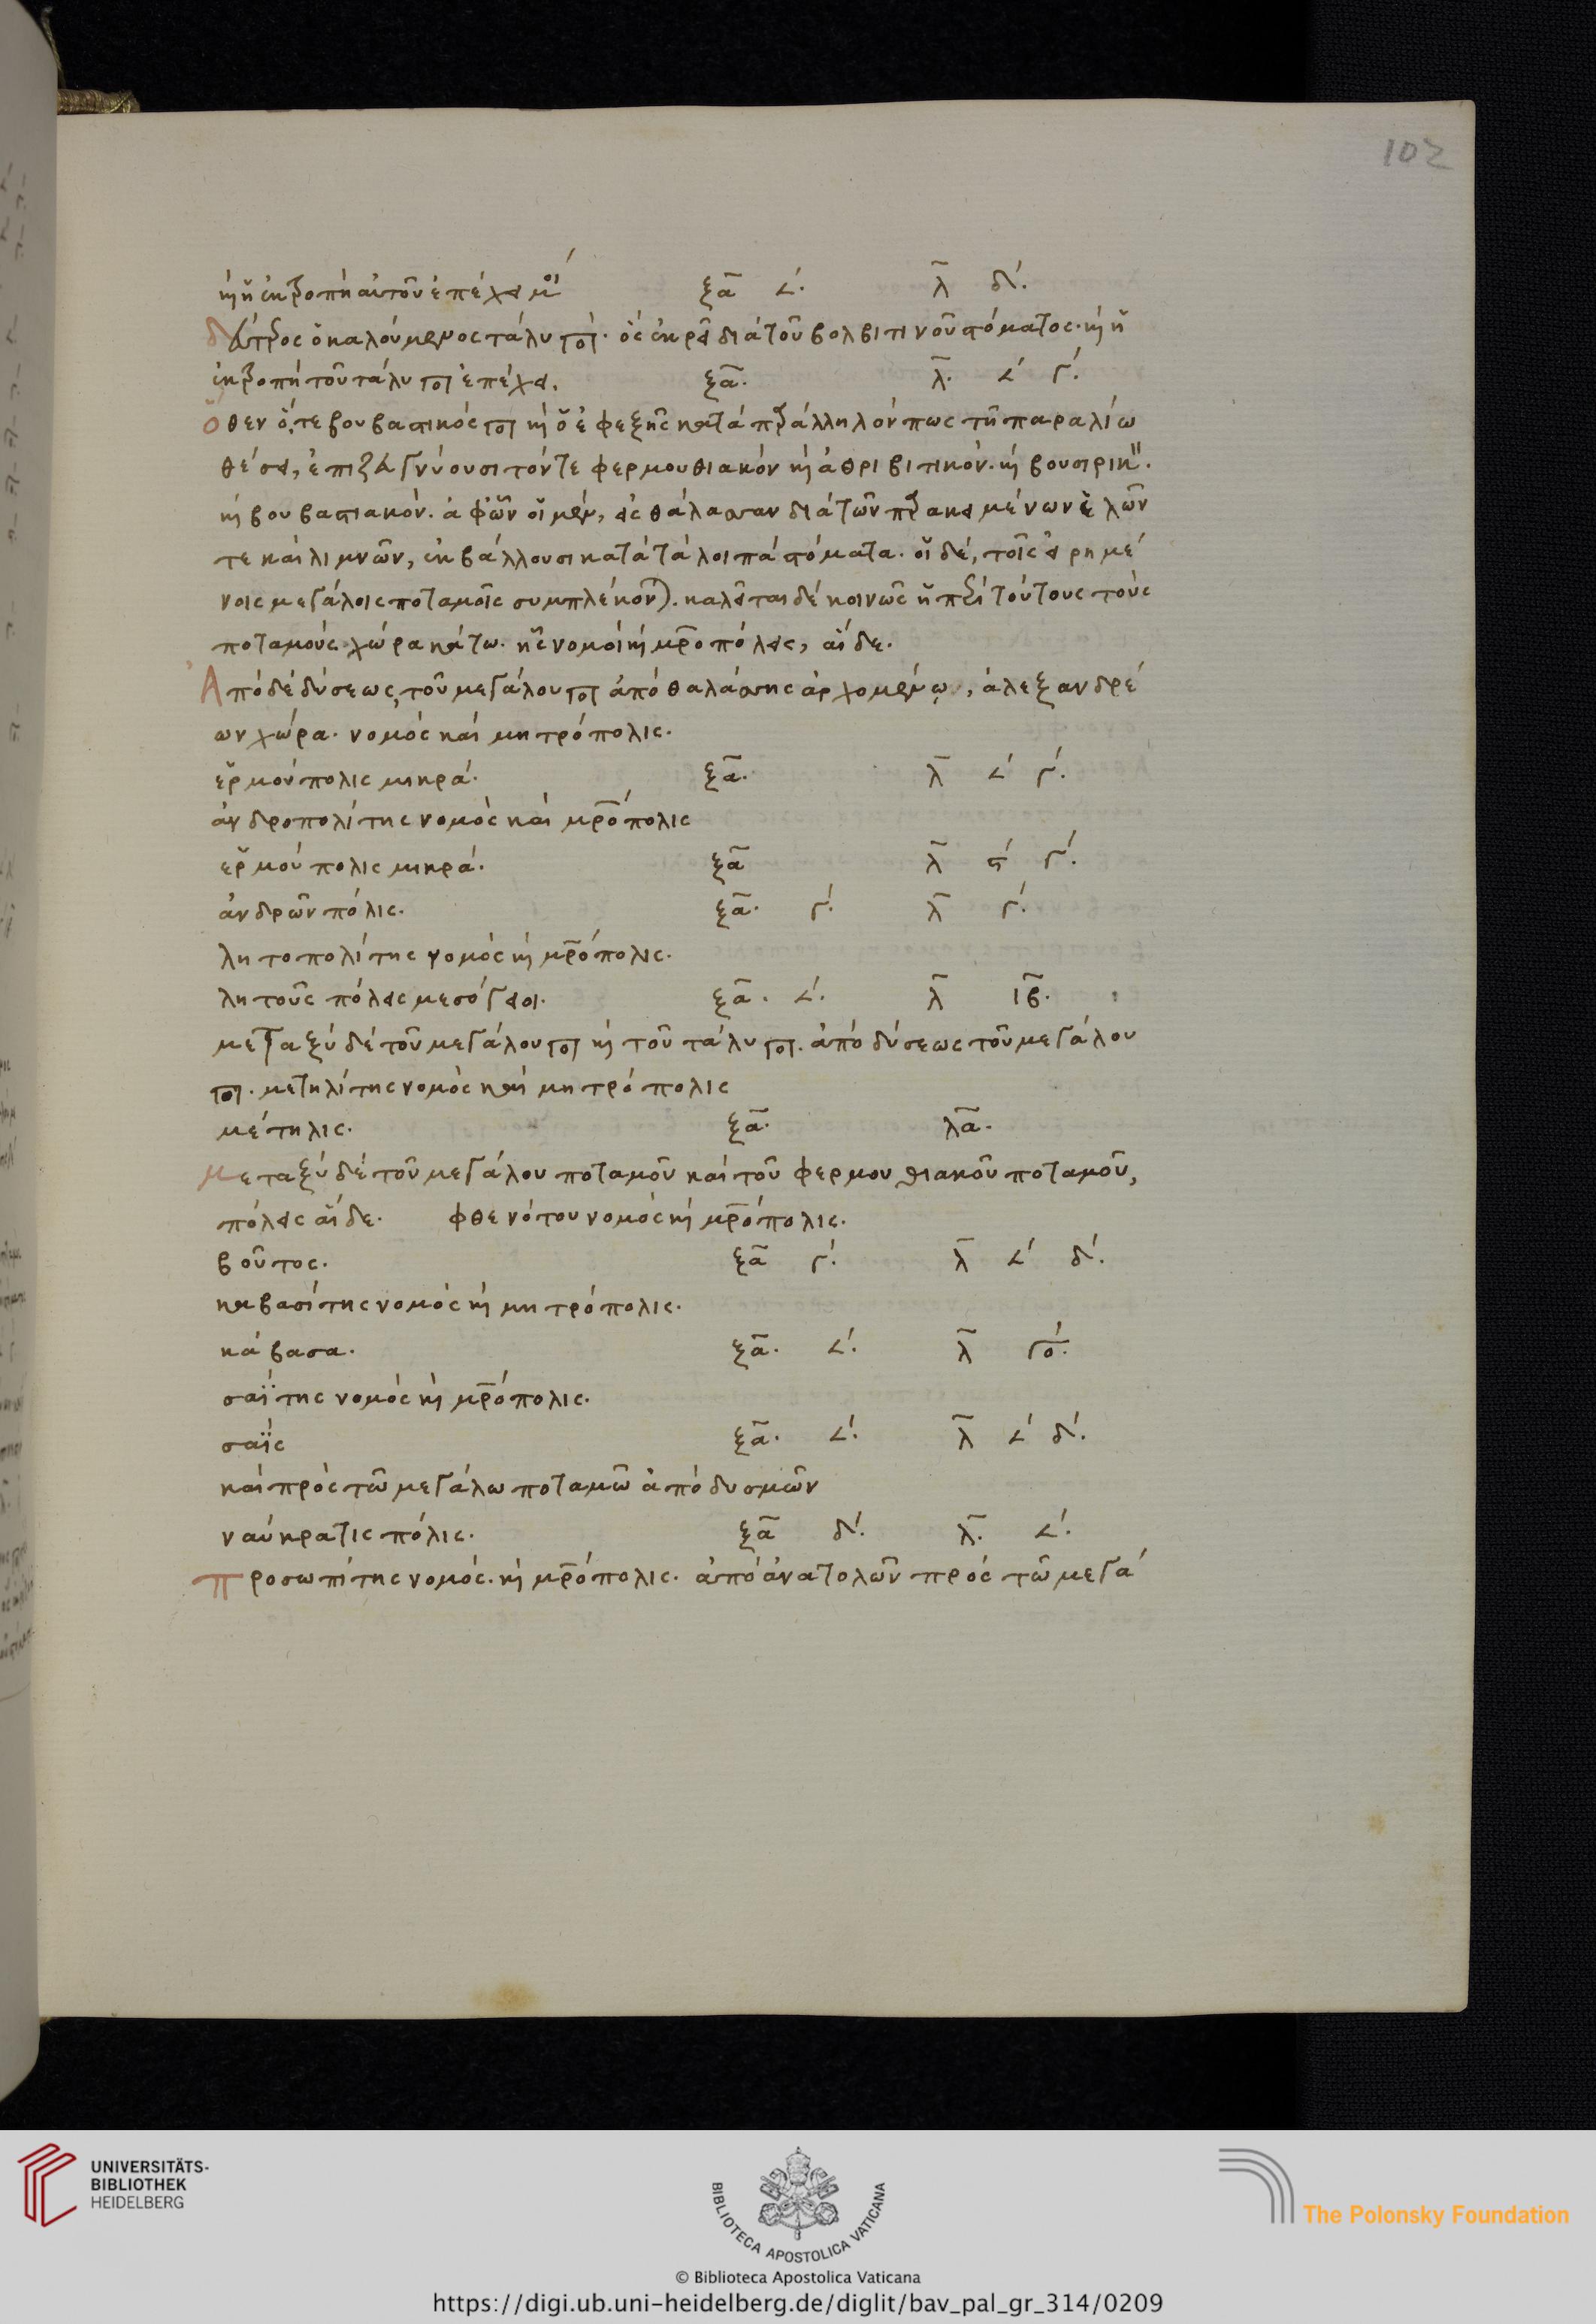 102
καὶ ἡ ἐκτροπὴ αὐτοῦ ἐπέχει μοί ξα ∠ λ δ
δεύτερος ὁ καλούμενος τάλυ ποτ. ὃς ἐκρεῖ διὰ τοῦ βολβιτινοῦ στόματος. καὶ ἡ
ἐκτροπὴ τοῦ τάλυ ποτ ἐπέχει. ξα. λ. ∠ γ.
ὅθεν ὅ,τε βουβαστικός ποτ καὶ ὁ ἐφεξῆς κατὰ παράλληλόν πως τῆ παραλίω
θέσει, ἐπιζευγνύουσι τόντε φερμουθιακόν καὶ ἀθριβιτικόν. καὶ βουσιρικ.
καὶ βουβαστιακόν. ἀφ ὧν οἱ μέν, εἰς θάλασσαν διὰ τῶν παρακειμένων ἑλῶν
τε καὶ λιμνῶν, ἐκβάλλουσι κατὰ τὰ λοιπὰ στόματα. οἱ δέ, τοῖς εἰρημέ
νοις μεγάλοις ποταμοῖς συμπλέκον). καλεῖται δὲ κοινῶς ἡ περὶ τούτους τοὺς
ποταμοὺς χώρα κάτω. ἧς νομοὶ καὶ μροπόλεις, αἵδε.
Ἀπὸ δὲ δύσεως, τοῦ μεγάλου ποτ ἀπὸ θαλάσσης ἀρχομένω, ἀλεξανδρέ
ων χώρα. νομὸς καὶ μητρόπολις.
ἑρμούπολις μικρά. ξα. λ ∠ γ.
ἀνδροπολίτης νομὸς καὶ μρόπολις
ἑρμούπολις μικρά. ξα λ ϛ γ.
ἀνδρῶν πόλις. ξα. γ. λ γ.
λητοπολίτης νομὸς καὶ μρόπολις.
λητοῦς πόλεις μεσόγειοι. ξα. ∠. λ ιβ.
μεταξὺ δὲ τοῦ μεγάλου ποτ καὶ τοῦ τάλυ ποτ. ἀπὸ δύσεως τοῦ μεγάλου
ποτ. μετηλίτης νομὸς καὶ μητρόπολις
μέτηλις. ξα. λα.
μεταξὺ δὲ τοῦ μεγάλου ποταμοῦ καὶ τοῦ φερμουθιακοῦ ποταμοῦ,
πόλεις αἵδε. φθενότου νομὸς καὶ μρόπολις.
βοῦτος. ξα γ. λ ∠ δ.
καβασίτης νομὸς καὶ μητρόπολις.
κάβασα. ξα. ∠. λ γο.
σαΐτης νομὸς καὶ μρόπολις.
σαῒς ξα. ∠. λ ∠ δ.
καὶ πρὸς τῶ μεγάλω ποταμῶ ἀπὸ δυσμῶν
ναύκρατις πόλις. ξα δ. λ. ∠.
προσωπίτης νομός. καὶ μρόπολις. ἀπὸ ἀνατολῶν πρὸς τῶ μεγά
UNIVERSITÄTS-
BIBLIOTHEK
HEIDELBERG
BIBLIOTECA APOSTOLICA VATICANA
The Polonsky Foundation
© Biblioteca Apostolica Vaticana
https://digi.ub.uni-heidelberg.de/diglit/bav_pal_gr_314/0209